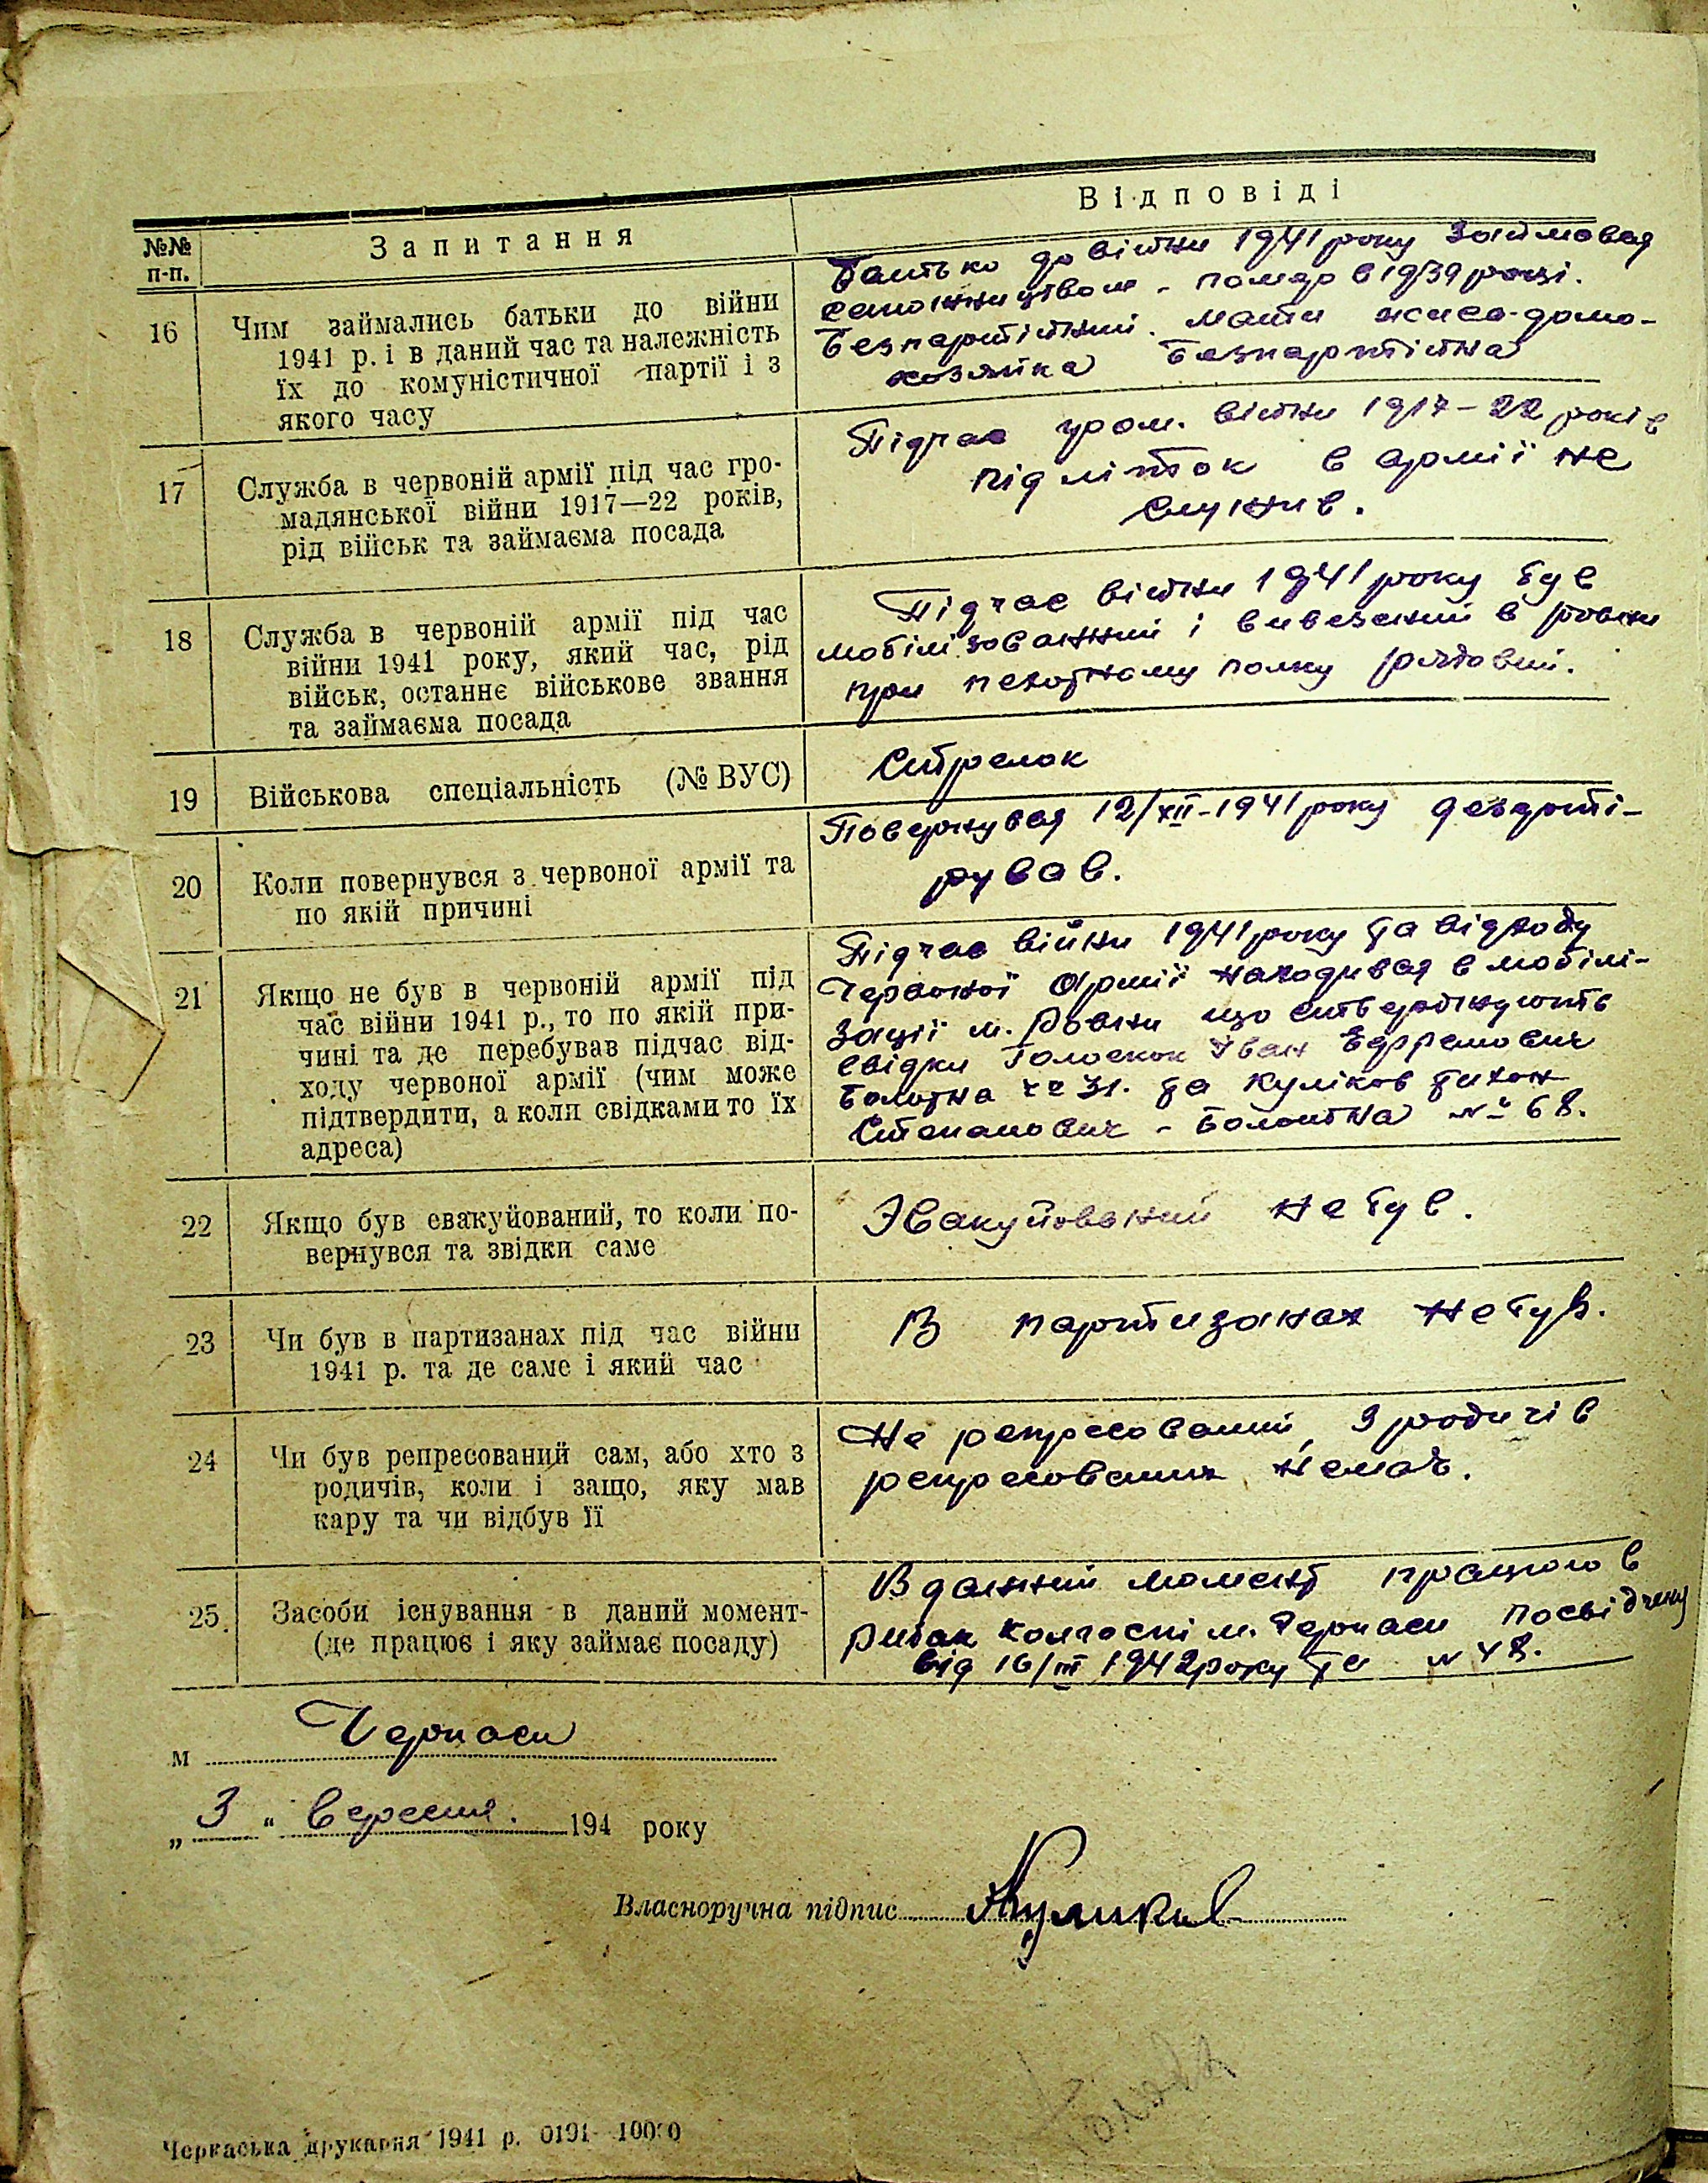 Відповіді
№№ п-п.
Запитання
16
Чим займались батьки до війни
1941 р. і в даний час та належність
їх до комуністичної партії і з
якого часу
Батько до війни 1941 року займовая
сапожництвом - помер в 1939 році.
Безпартійний. Мати жива-домо-
хозяйка Безпартійна
17
Служба в червоній армії під час гро-
мадянської війни 1917—22 років,
рід військ та займаєма посада
Підчас гром. війни 1917-22 років
підліток в армії не
служив.
18
Служба в червоній армії під час
війни 1941 року, який час, рід
військ, останнє військове звання
та займаєма посада
Підчас війни 1941 року був
мобілізованний і вивезений в Ровни
при пехотному полку рядовий.
19
Військова спеціальність (№ ВУС)
Стрелок
20
Коли повернувся з червоної армії та
по якій причині
Повернувая 12/XII-1941 року дезерті-
рував.
21
Якщо не був в червоній армії під
час війни 1941 р., то по якій при-
чині та де перебував підчас від-
ходу червоної армії (чим може
підтвердити, а коли свідками то їх
адреса)
Підчас війни 1941 року та відходу
Червоної Армії находивая в мобілі-
зації м. Ровни що стверджують
свідки Голоскок Іван Ефремович
Болотна № 31. та Куліков Тихон
Степанович - Болотна № 68.
22
Якщо був евакуйований, то коли по-
вернувся та звідки саме
Эвакуйований не був.
23
Чи був в партизанах під час війни
1941 р. та де саме і який час
В партизанах не був.
24
Чи був репресований сам, або хто з
родичів, коли і защо, яку мав
кару та чи відбув її
Не репресований, З родичів
репресованих немає.
25
Засоби існування в даний момент-
(де працює і яку займає посаду)
В данний момент працюю в
Рибак колгоспі м. Черкаси посвідчену
від 16/III 1942 року за № 48.
м Черкаси
„3“ вересня. 194 року
Власноручна підпис Куликов
Черкаська друкарня 1941 р. 0191—10000